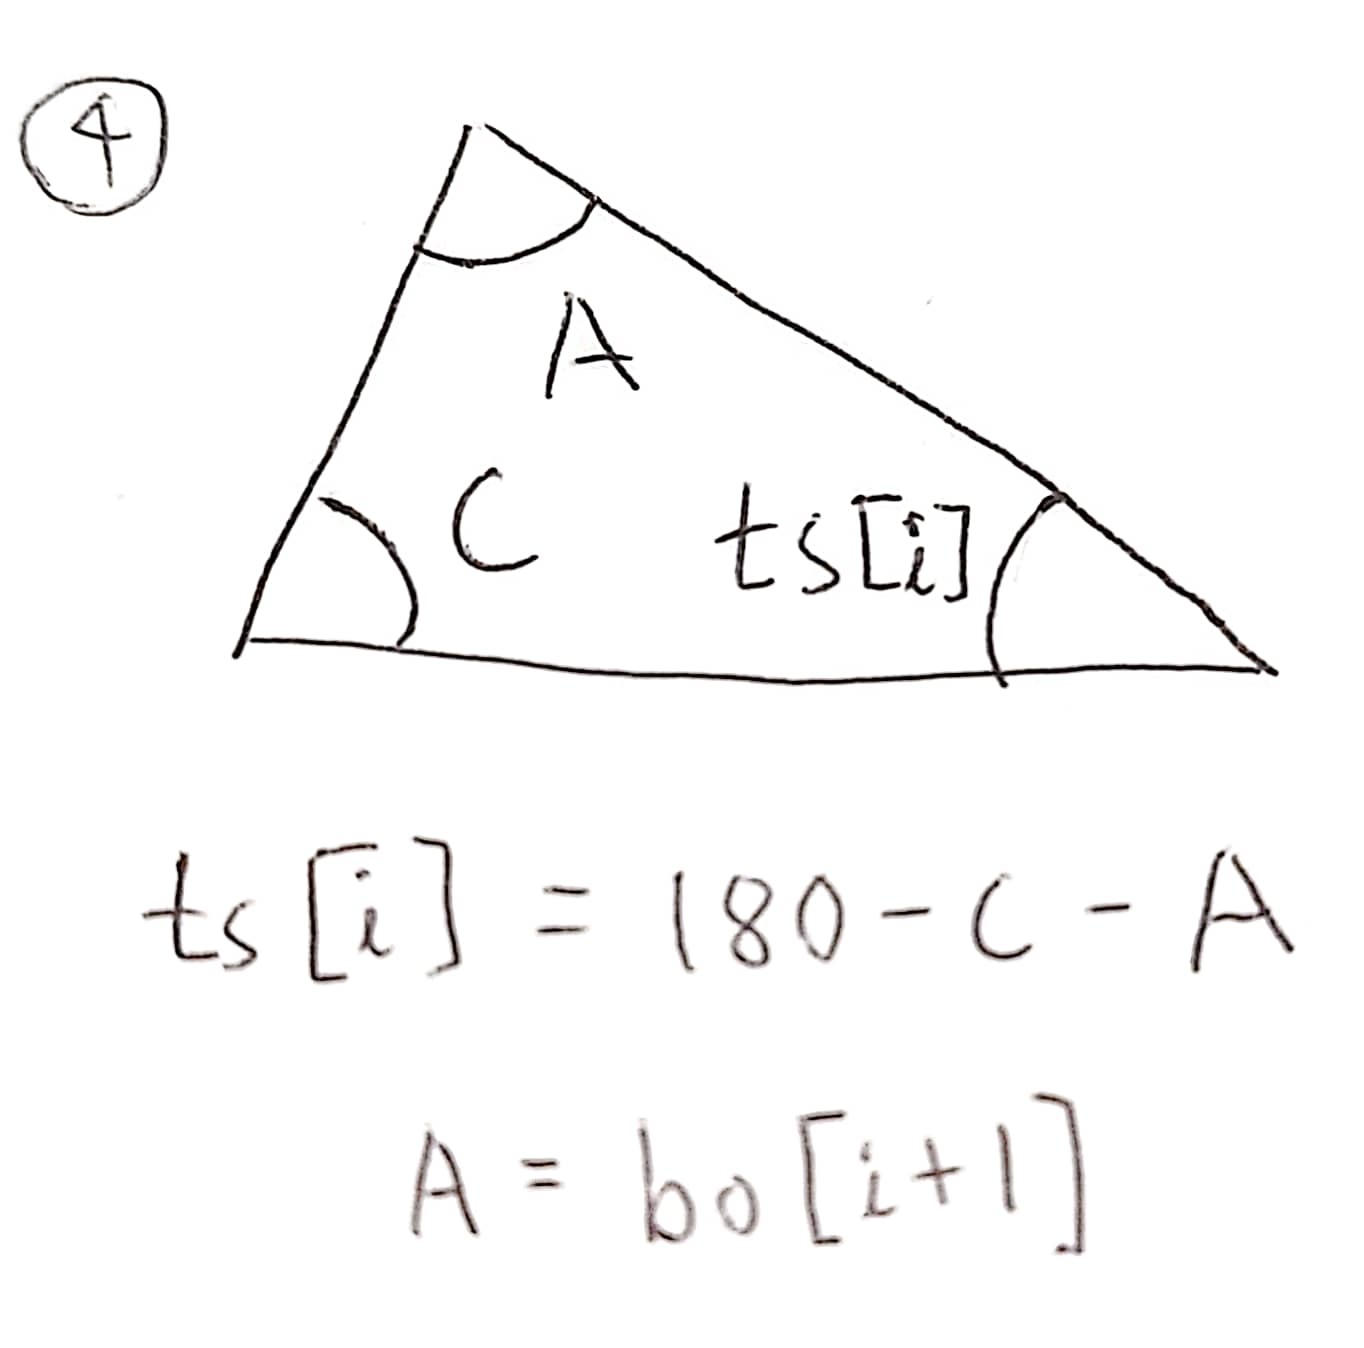 4
A
C
ts[i]
ts[i] = 180 - C - A
A = bo[i+1]